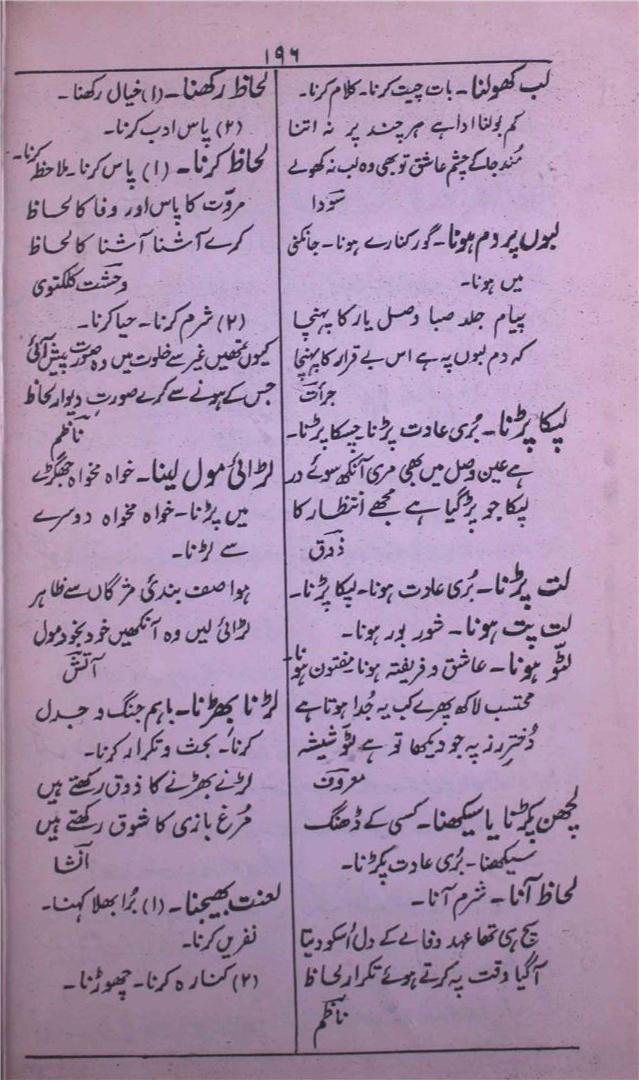 ۱۹۶
لب کھولنا۔ بات چیت کرنا۔ کلام کرنا۔
کم بولنا ادا ہے ہر چند پر نہ اتنا
مُند جائے چشم عاشق تو بھی وہ لب نہ کھولے
سودا
لبوں پر دم ہونا۔ گور کنارے ہونا۔ جانکنی
میں ہونا۔
پیام جلد صبا وصل یار کا پہنچا
کہ دم لبوں پہ ہے اس بے قرار کا پہنچا
جرأت
لپکا پڑنا۔ بُری عادت پڑنا چسکا پڑنا۔
ہے عین وصل میں بھی مری آنکھ سوئے در
لپکا جو پڑ گیا ہے مجھے انتظار کا
ذوق
لت پڑنا۔ بُری عادت ہونا۔ لپکا پڑنا۔
لت پت ہونا۔ شور بور ہونا۔
لٹّو ہونا۔ عاشق و فریفتہ ہونا مفتون ہونا۔
محتسب لاکھ پھرے کب یہ جُدا ہوتا ہے
دُختر رز پہ جو دیکھا تو ہے لٹّو شیشہ
معروف
لچھن پکڑنا یا سیکھنا۔ کسی کے ڈھنگ
سیکھنا۔ بُری عادت پکڑنا۔
لحاظ آنا۔ شرم آنا۔
سچ ہی تھا عہد وفا لے کے دل اُسکو دیتا
آگیا وقت پہ کرتے ہوئے تکرار لحاظ
ناظم
لحاظ رکھنا۔ (۱) خیال رکھنا۔
(۲) پاس ادب کرنا۔
لحاظ کرنا۔ (۱) پاس کرنا۔ ملاحظہ کرنا۔
مروّت کا پاس اور وفا کا لحاظ
کرے آشنا آشنا کا لحاظ
وحشت کلکتوی
(۲) شرم کرنا۔ حیا کرنا۔
کیوں تمھیں غیر سے خلوت میں وہ صورت پیش آئی
جس کے ہونے سے کرے صورتِ دیوار لحاظ
ناظم
لڑائی مول لینا۔ خواہ مخواہ جھگڑے
میں پڑنا۔ خواہ مخواہ دوسرے
سے لڑنا۔
ہوا صف بندیٔ مژگاں سے ظاہر
لڑائی لیں وہ آنکھیں خود بخود مول
آتش
لڑنا بھڑنا۔ باہم جنگ و جدل
کرنا۔ بحث و تکرار کرنا۔
لڑنے بھڑنے کا ذوق رکھتے ہیں
مُرغ بازی کا شوق رکھتے ہیں
انشا
لعنت بھیجنا۔ (۱) بُرا بھلا کہنا۔
نفریں کرنا۔
(۲) کنارہ کرنا۔ چھوڑنا۔